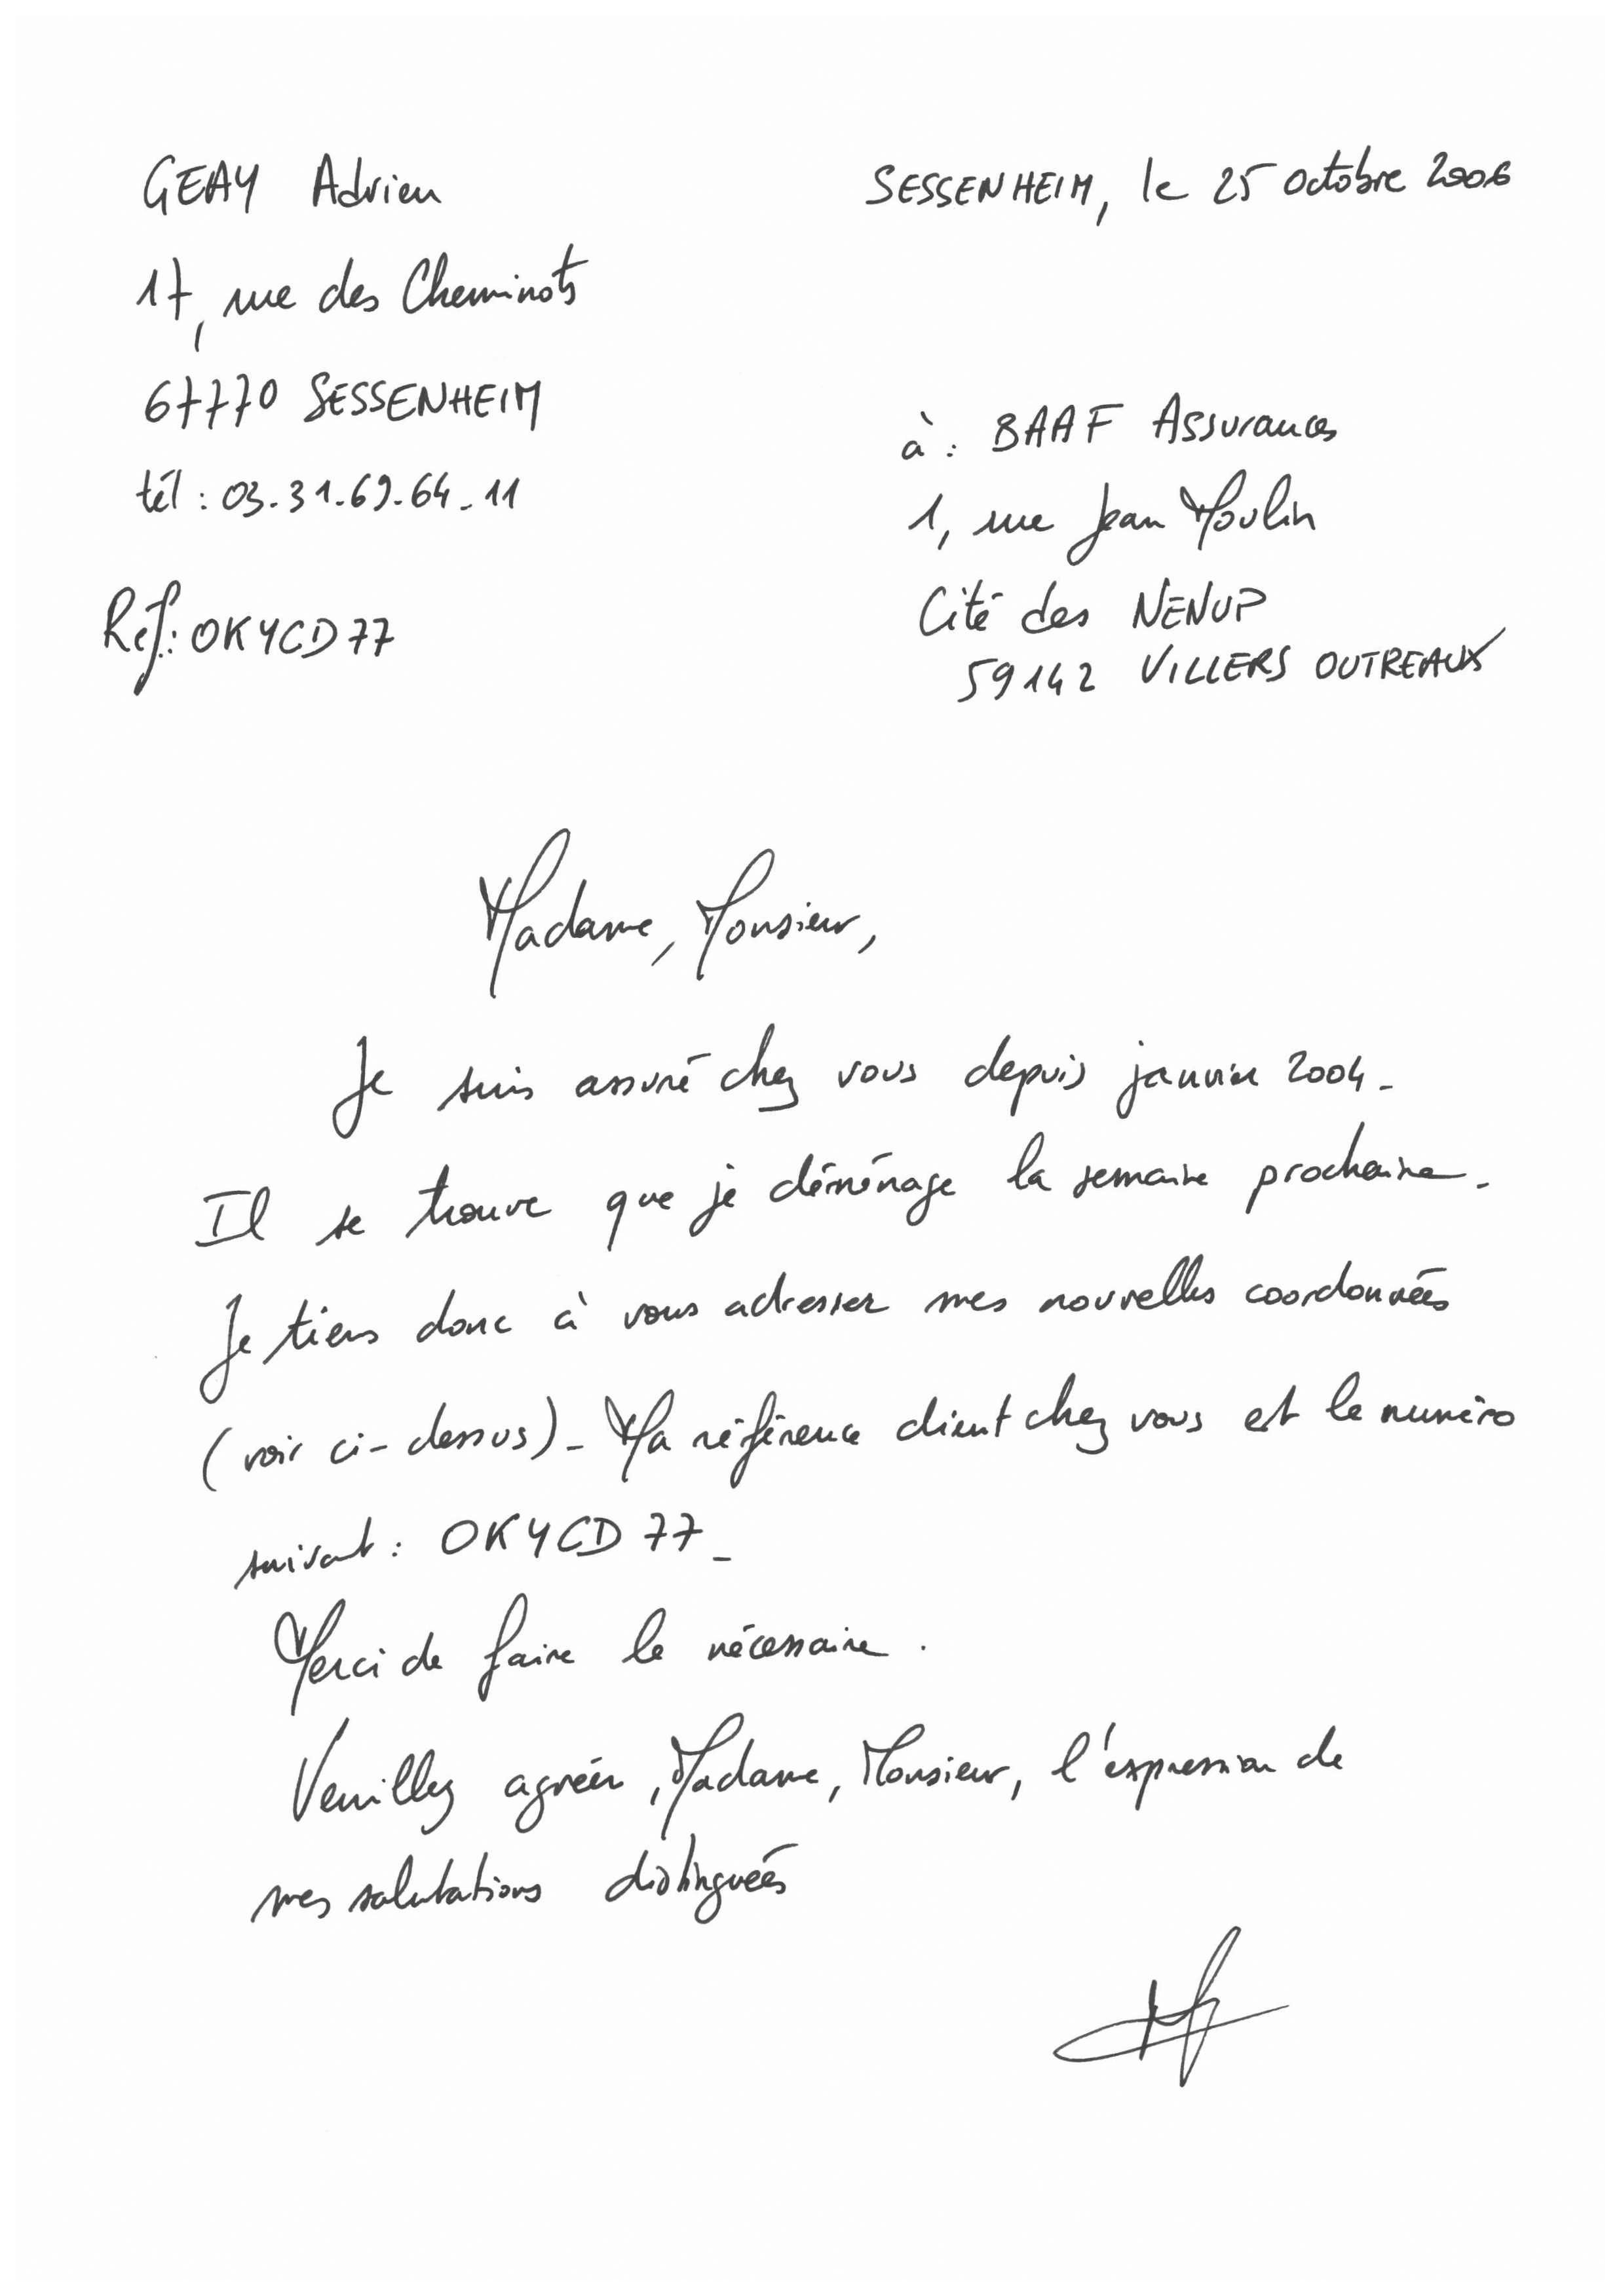 GEAY Adrien
SESSENHEIM, le 25 octobre 2006
17, rue des Cheminots
67770 SESSENHEIM
tél : 03.31.69.64.11
Réf : OKYCD77
à : BAAF Assurances
1, rue Jean Moulin
Cité des NENUP
59142 VILLERS OUTREAUX
Madame, Monsieur,
Je suis assuré chez vous depuis janvier 2004.
Il se trouve que je déménage la semaine prochaine.
Je tiens donc à vous adresser mes nouvelles coordonnées
(voir ci-dessus). Ma référence client chez vous est le numéro
suivant : OKYCD77.
Merci de faire le nécessaire.
Veuillez agréer, Madame, Monsieur, l'expression de
mes salutations distinguées